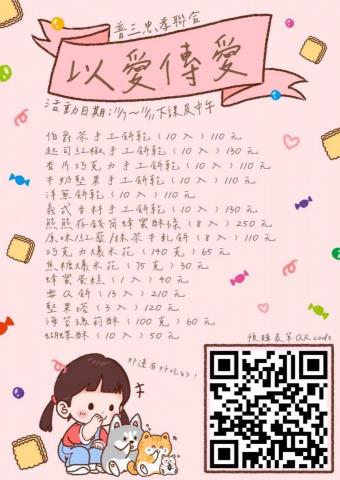 普三忠孝聯合
以愛傳愛
活動日期:11/7~11/11下課及中午
伯爵茶手工餅乾(10入)110元
起司紅椒手工餅乾(10入)130元
杏片巧克力手工餅乾(10入)110元
牛奶堅果手工餅乾(10入)110元
洋蔥餅乾(10入)110元
義式香料手工餅乾(10入)130元
熊熊存錢筒蜂蜜酥條(8入)250元
原味/紅藜/抹茶牛軋餅(8入)110元
巧克力爆米花(140克)65元
焦糖爆米花(95克)30元
蜂蜜蛋糕(1入)40元
雪Q餅(13入)210元
堅果塔(3入)120元
海苔瑪莉酥(100克)60元
蝴蝶酥(10入)50元
預購表單QR code